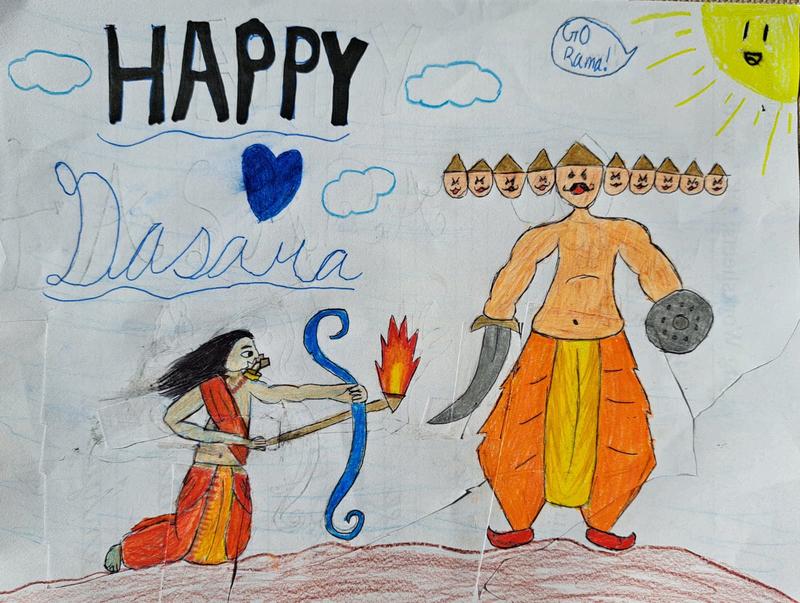 HAPPY
Dasara
GO
Rama!